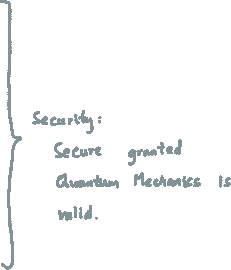 Security:
Secure granted
Quantum Mechanics is
valid.